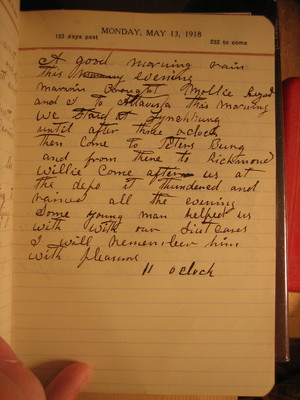 MONDAY, MAY 13, 1918
132 days past 232 to come
A good morning rain
this evening
marvin brought Mollie
and I to Altavista this morning
We Staid at Lynchburg
until after three oclock
then come to Peters burg
and from there to Richmond
Willie Come after us at
the depo it thundered and
rained all the evening
Some young man helped us
with with our Suit cases
I will remember him
with pleasure
11 oclock